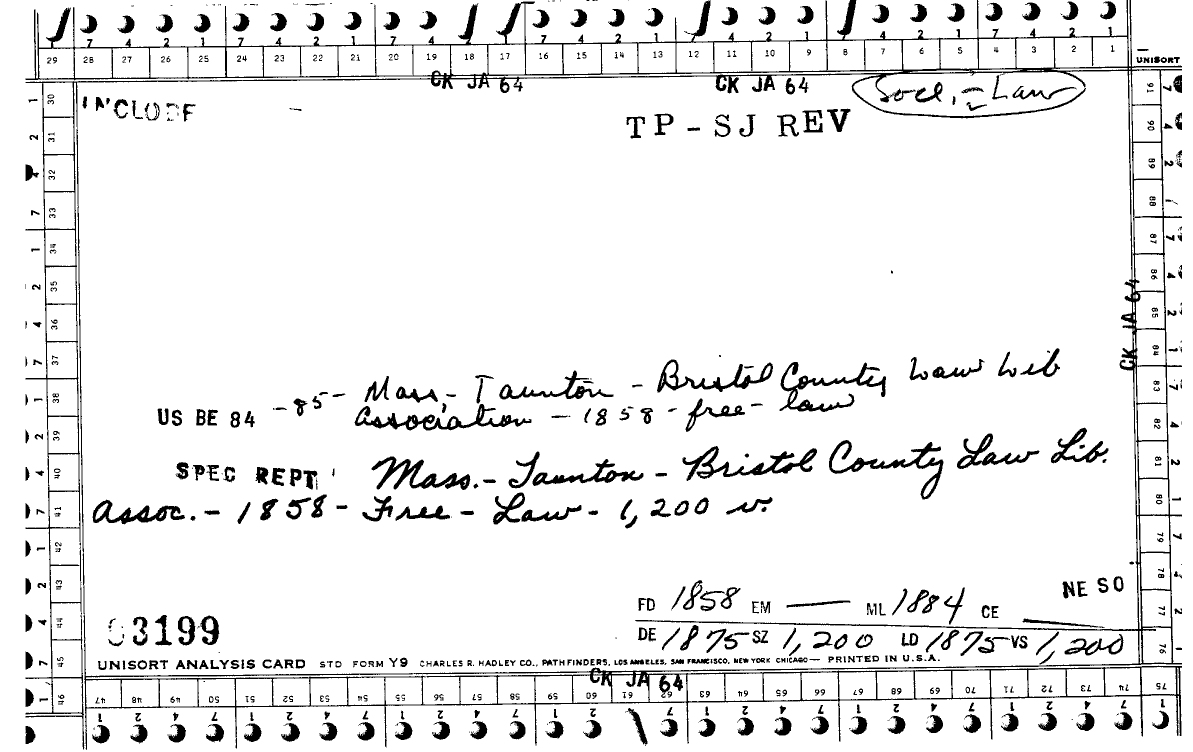 7 4 2 1 7 4 2 1 7 4 2 1 7 4 2 1 7 4 2 1
29 28 27 26 25 24 23 22 21 20 19 18 17 16 15 14 13 12 11 10 9 8 7 6 5 4 3 2 1
UNISORT
CK JA 64 CK JA 64 Socl. - Law
INCLUDE -
TP - SJ REV
CK JA 64
US BE 84 -85- Mass. - Taunton - Bristol County Law Lib
Association - 1858 - free - law
SPEC REPT Mass. - Taunton - Bristol County Law Lib.
Assoc. - 1858 - Free - Law - 1,200 v.
NE SO
FD 1858 EM — ML 1884 CE —
03199
DE 1875 SZ 1,200 LD 1875 VS 1,200
UNISORT ANALYSIS CARD STD FORM Y9 CHARLES R. HADLEY CO., PATHFINDERS, LOS ANGELES, SAN FRANCISCO, NEW YORK CHICAGO — PRINTED IN U.S.A.
CK JA 64
47 48 49 50 51 52 53 54 55 56 57 58 59 60 61 62 63 64 65 66 67 68 69 70 71 72 73 74 75